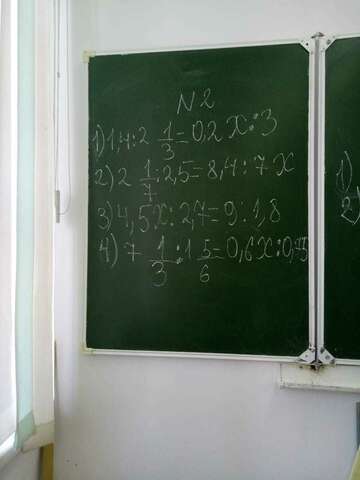 N 2
1) 1,4:2 1/3=0,2x:3
2) 2 1/7:2,5=8,4:7x
3) 4,5x:2,7=9:1,8
4) 7 1/3:1 5/6=0,6x:0,75
1)
2)